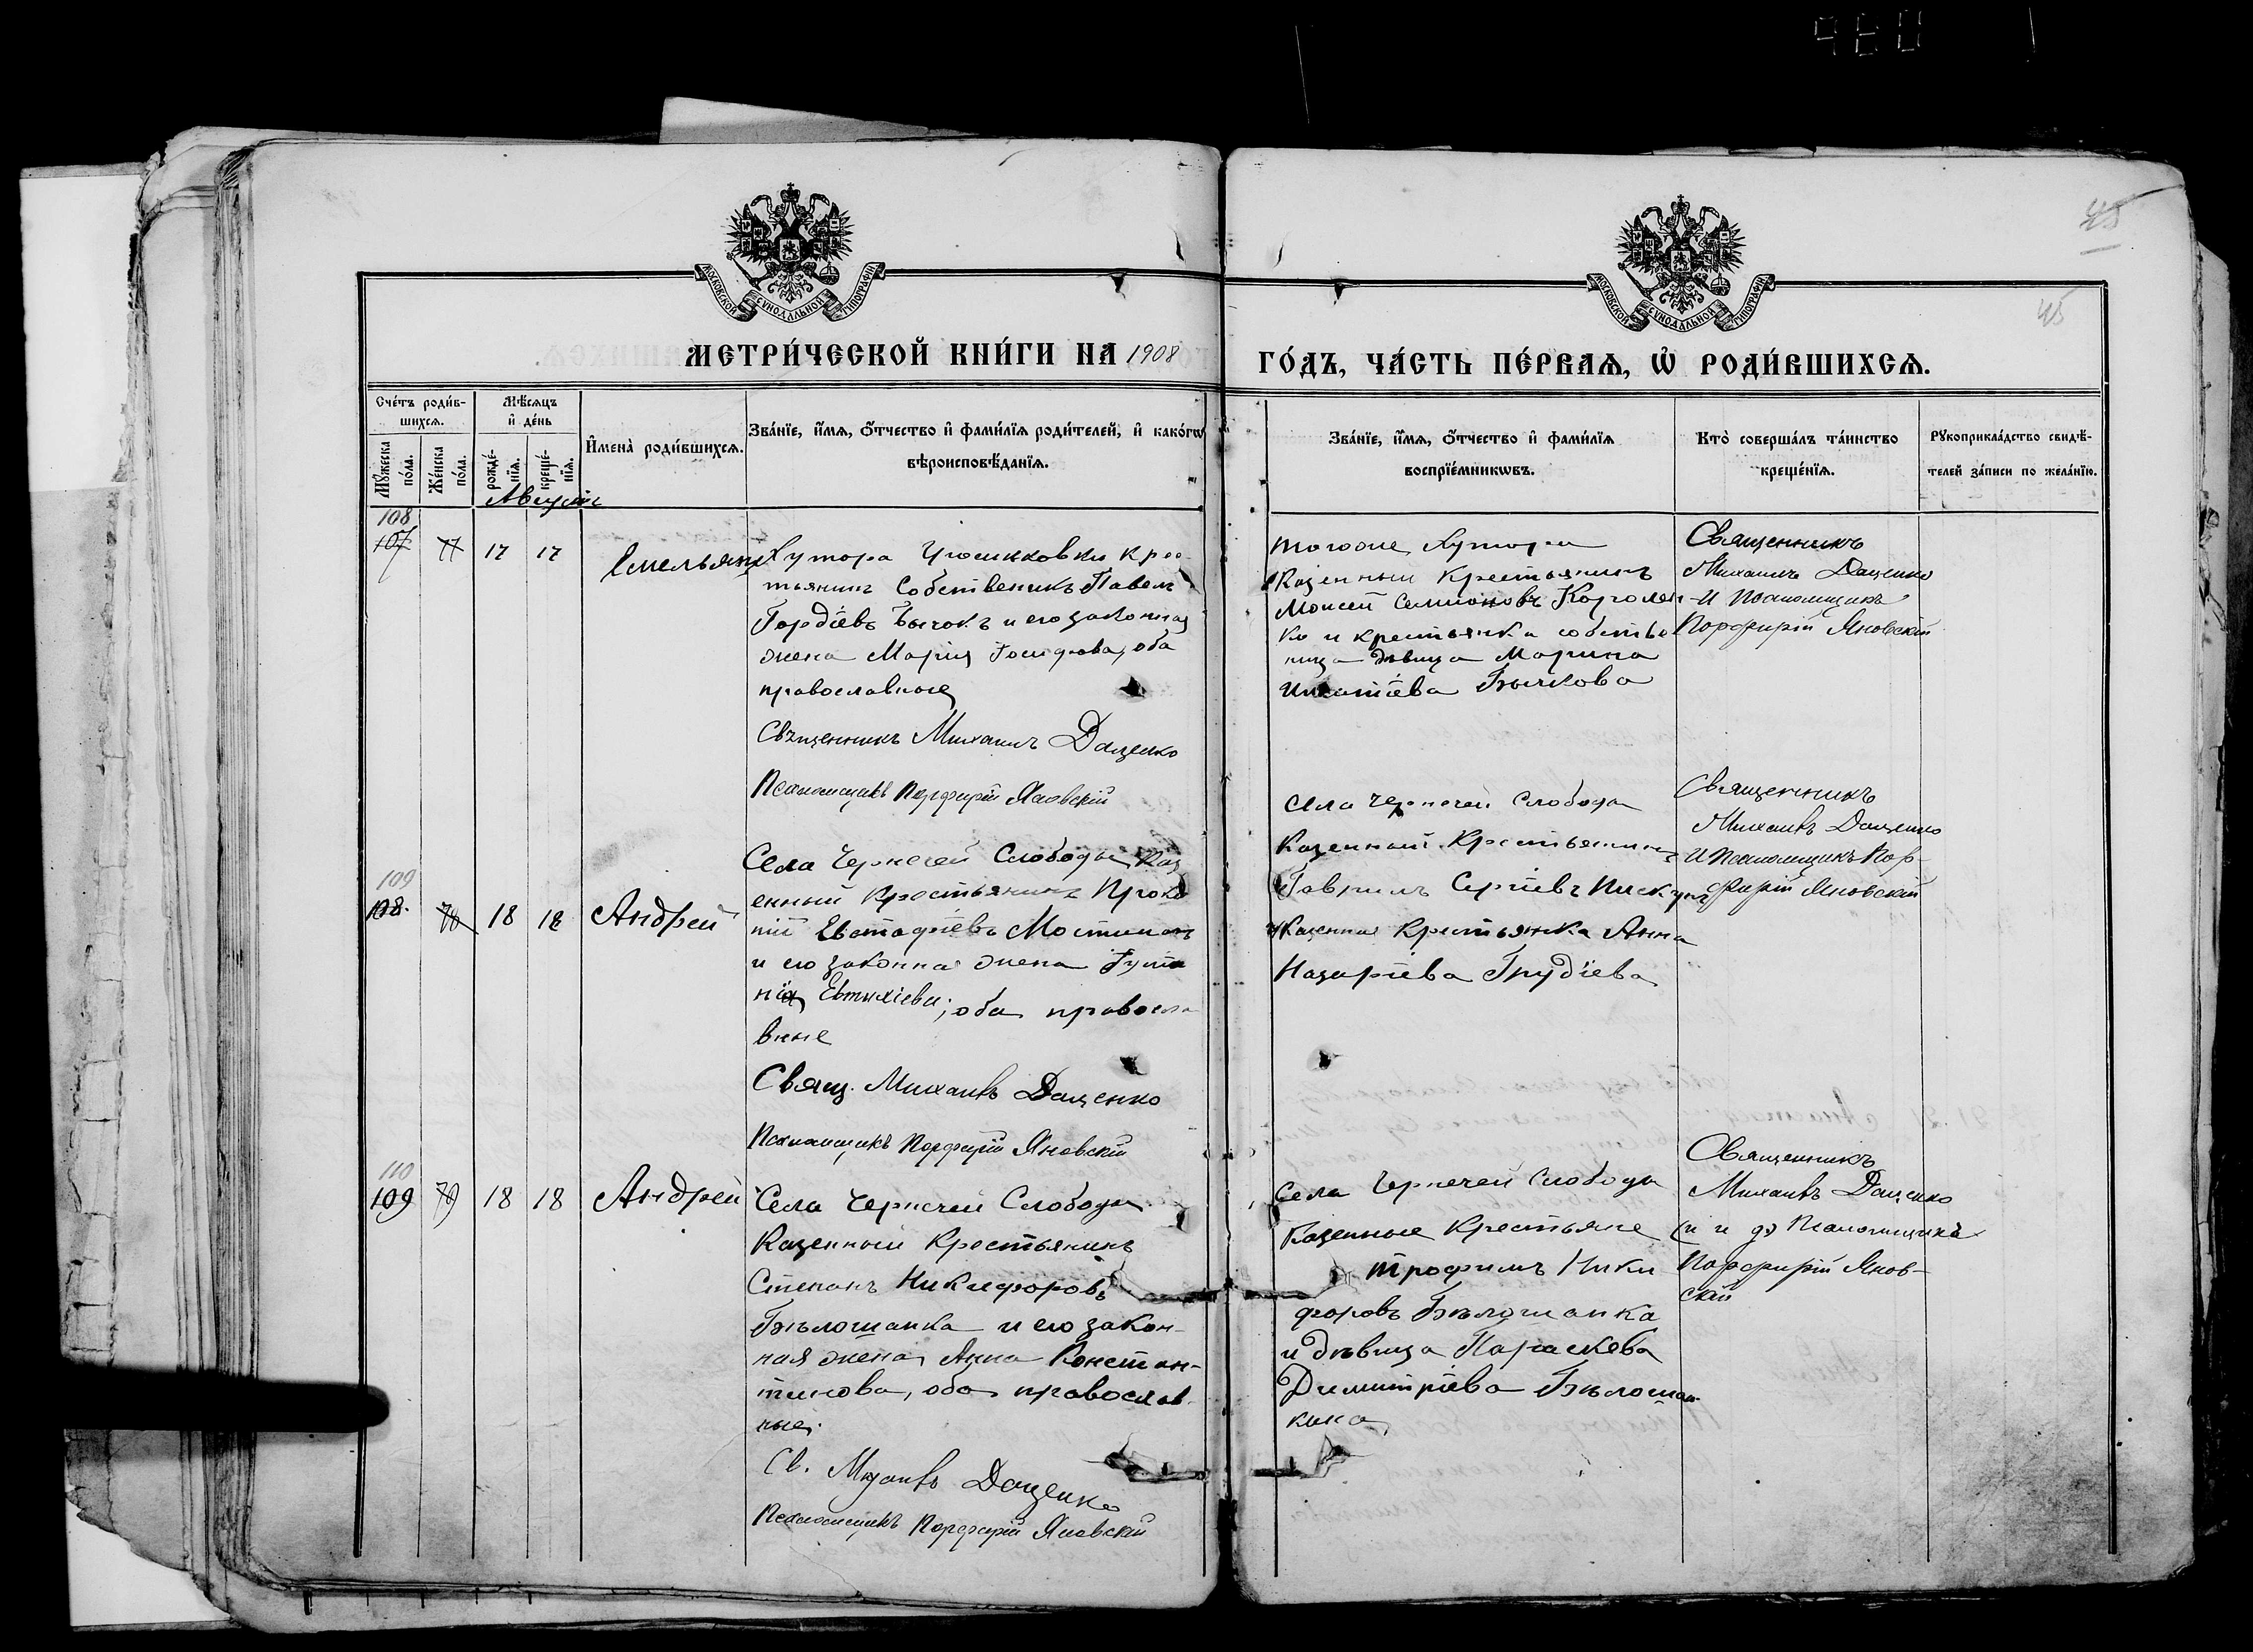 980
45
45
МОСКОВСКОЙ СѴНОДАЛЬНОЙ ТИПОГРАФІИ
МОСКОВСКОЙ СѴНОДАЛЬНОЙ ТИПОГРАФІИ
МЕТРИ́ЧЕСКОЙ КНИ́ГИ НА 1908
ГО́ДЪ, ЧА́СТЬ ПЕ́РВАѦ, Ѿ РОДИ́ВШИХСѦ.
Сче́тъ роди́в-
шихсѧ.
Мꙋ́жеска по́ла.
Же́нска по́ла.
Мѣ́сѧцъ
и҆ де́нь
рожде́-
нїѧ.
креще́-
нїѧ.
Августъ
И҆мена̀ роди́вшихсѧ.
Зва́нїе, и҆́мѧ, ѻ҆́тчество и҆ фами́лїѧ роди́телей, и҆ како́гѡ
вѣроисповѣ́данїѧ.
Зва́нїе, и҆́мѧ, ѻ҆́тчество и҆ фами́лїѧ
воспрїе́мникѡвъ.
Кто̀ соверша́лъ та́инство
креще́нїѧ.
Рꙋкоприкла́дство свидѣ́-
телей за́писи по жела́нїю.
108
107 77 17 17
Емельянъ
Хутора Крес-
тьянинъ Собственикъ Павелъ
Гордіевъ Бычокъ и его законная
жена Марія Іосифова, оба
православные
Священникъ Михаилъ Даценко
Псаломщикъ Порфирій Яновскій
тогоже Хутора
Казенный Крестьянинъ
Моисей Семионовъ Королен
ко и крестьянка собстве
ница дѣвица Марина
Игнатіева Бычкова
Священникъ
Михаилъ Даценко
И Псаломщикъ
Порфирій Яновскій
109
108. 78 18 18 Андрей
Села Чернечей Слободы Каз
енный Крестьянинъ Проко
пій Евстафіевъ
и его законна жена Іуста
нія Евтихіева; оба правосла
вные
Свящ. Михаилъ Даценко
Псаломщикъ Порфирій Яновскій
Села Чернечей Слободы
Казенный Крестьянинъ
Гавриилъ Сергіевъ Пискунъ
и Казенна Крестьянка Анна
Назаріева Грудіева
Священникъ
Михаилъ Даценко
И Псаломщикъ Пор-
фирій Яновскій
110
109 79 18 18 Андрей
Села Чернечей Слободы
Казенный Крестьянинъ
Степанъ Никифоровъ
Бѣлошапка и его закон-
ная жена Анна Констан-
тинова, оба православ-
ные.
Св. Михаилъ Даценко
Псаломщикъ Порфирій Яновскій
Села Чернечей Слободы
Казенные Крестьяне
Трофимъ Ники
форовъ Бѣлошапка
и дѣвица Параскева
Димитріева Бѣлошап-
кина
Священникъ
Михаилъ Даценко
Псаломщика
Порфирій Янов-
скій